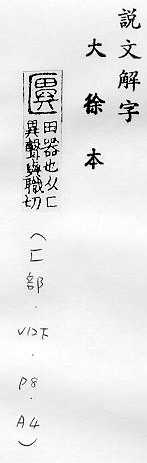 說文解字
大徐本
田器也从匚
異聲與職切
(匚部.V12下.P8.A4)